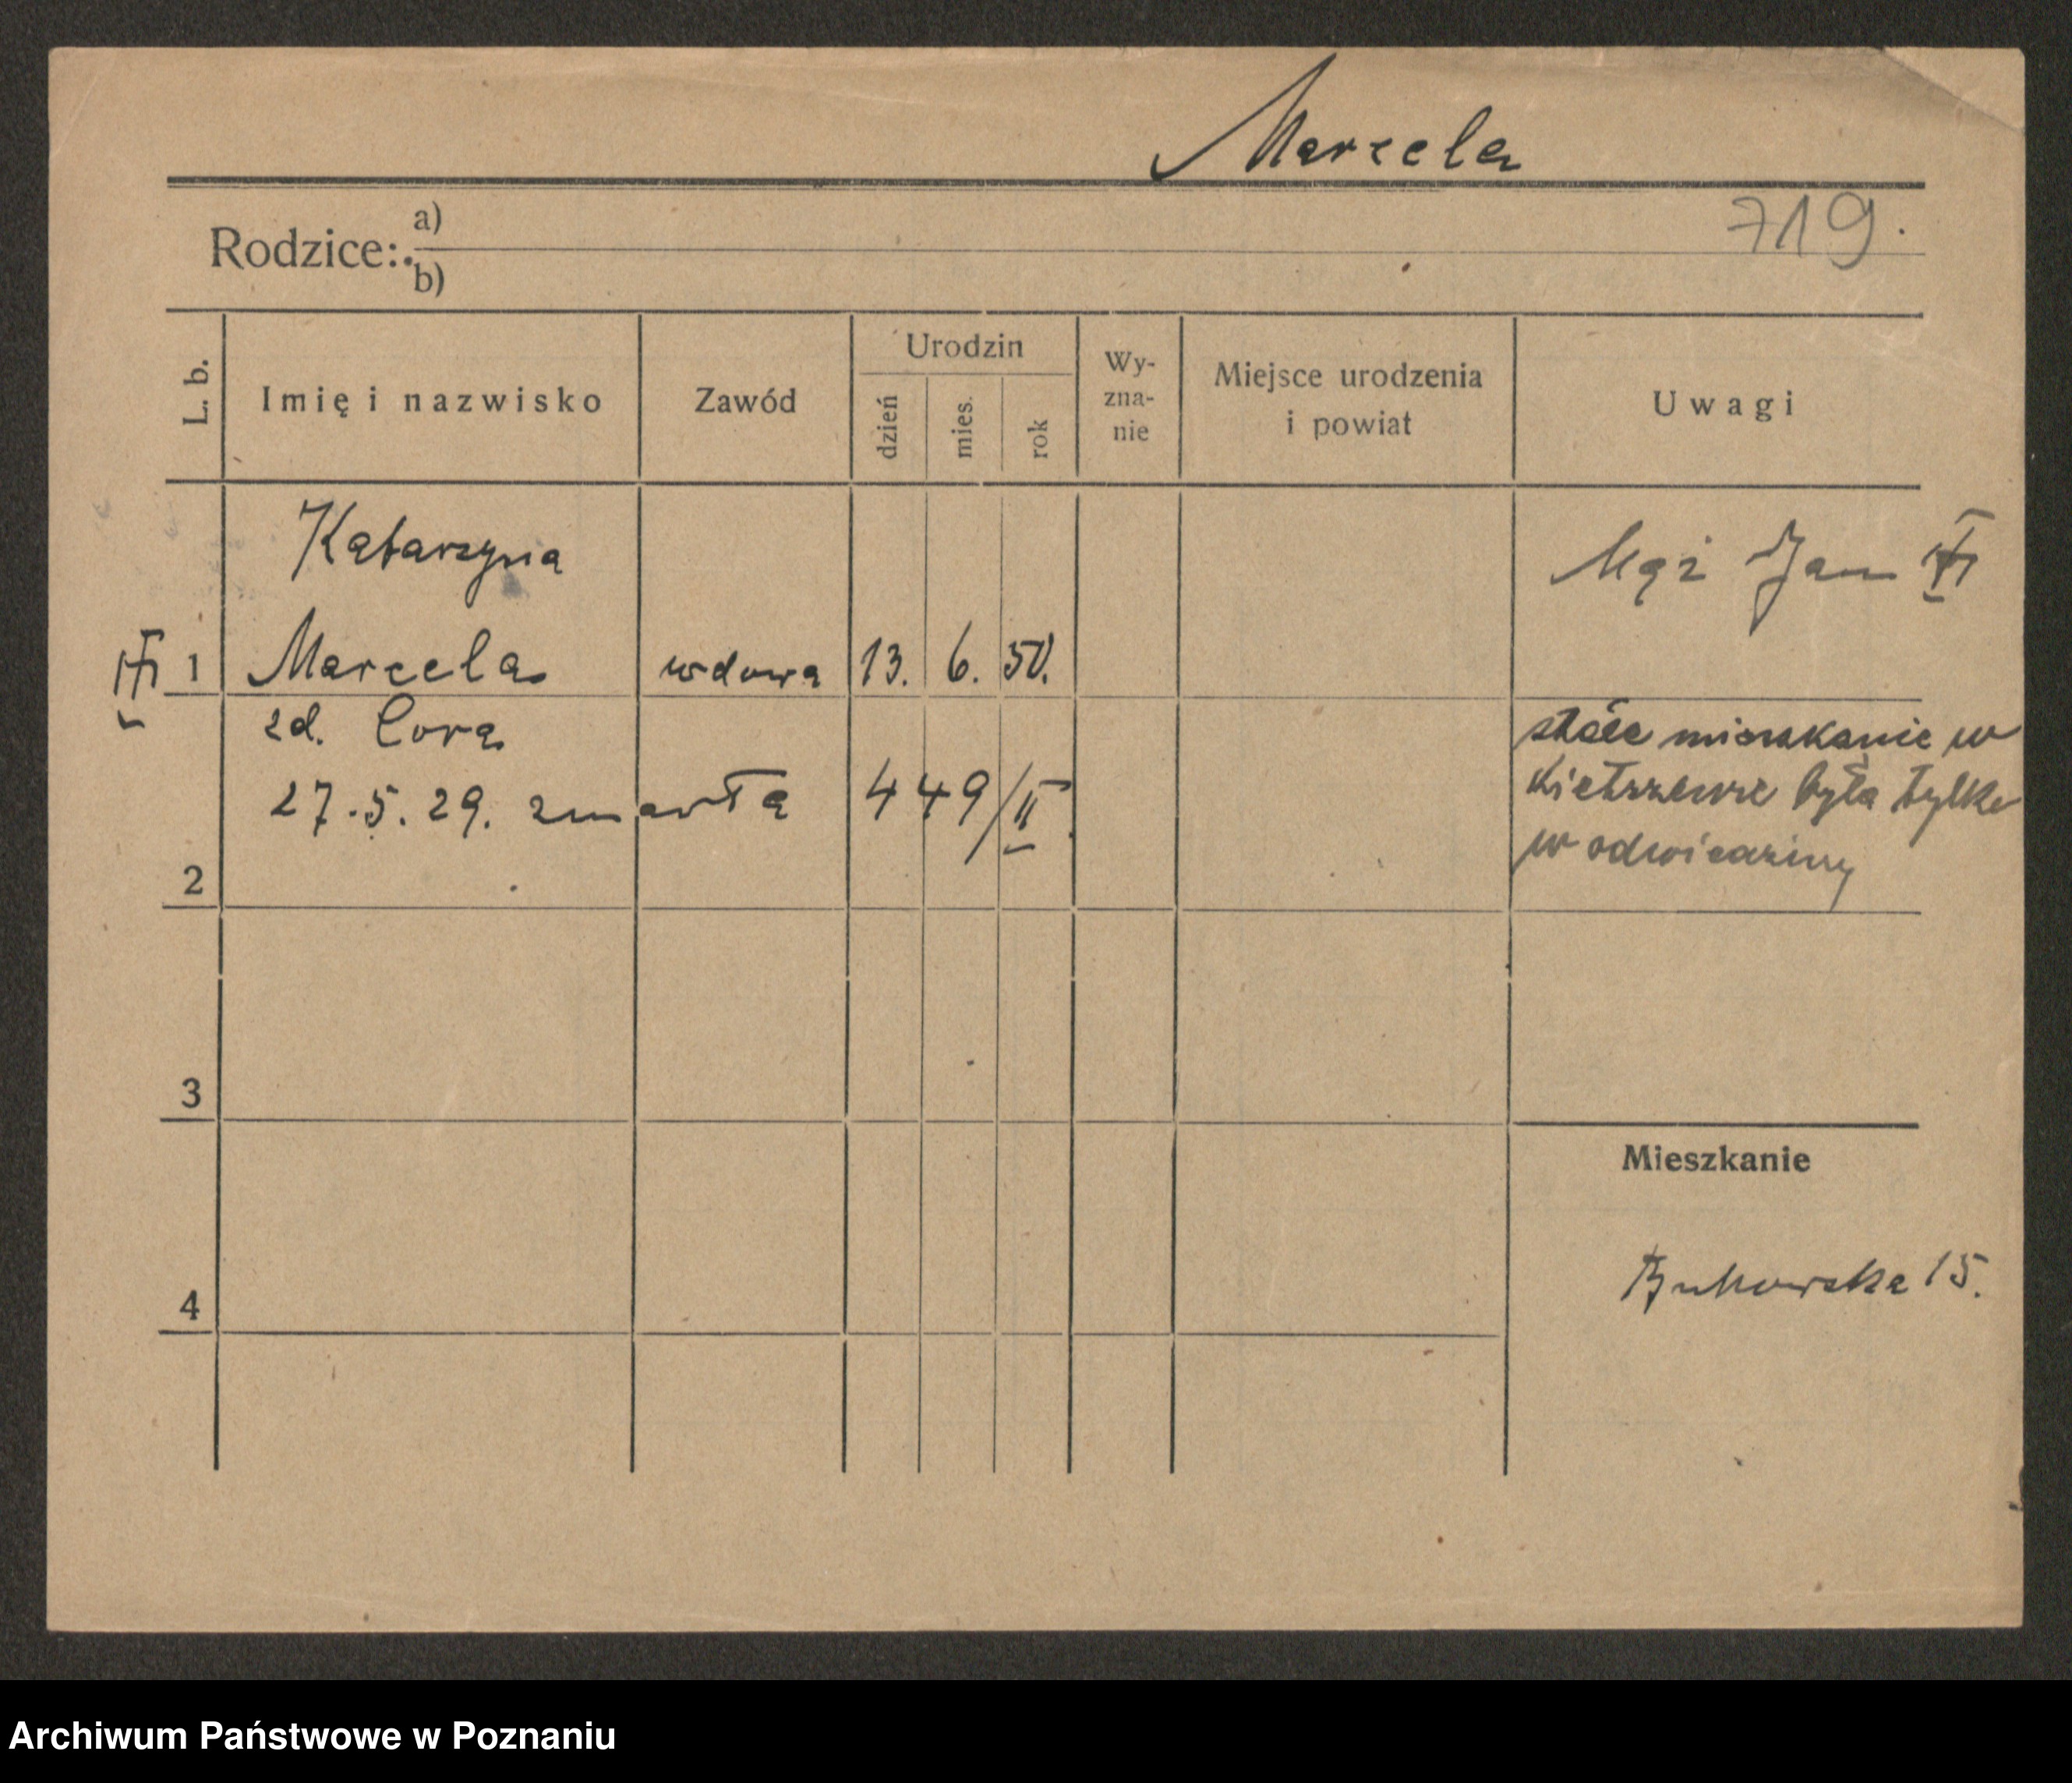 Marcela
719.
Rodzice: a)
b)
L. b.
Imię i nazwisko
Zawód
Urodzin
dzień
mies.
rok
Wy-
zna-
nie
Miejsce urodzenia
i powiat
Uwagi
Katarzyna
Mąż Jan
1 Marcela wdowa 13. 6. 50.
zd. Cora
27.5.29. zmarła 449/II.
stałe mieszkanie w
była tylko
w odwiedziny
2
3
Mieszkanie
4
Bukowska 15.
Archiwum Państwowe w Poznaniu